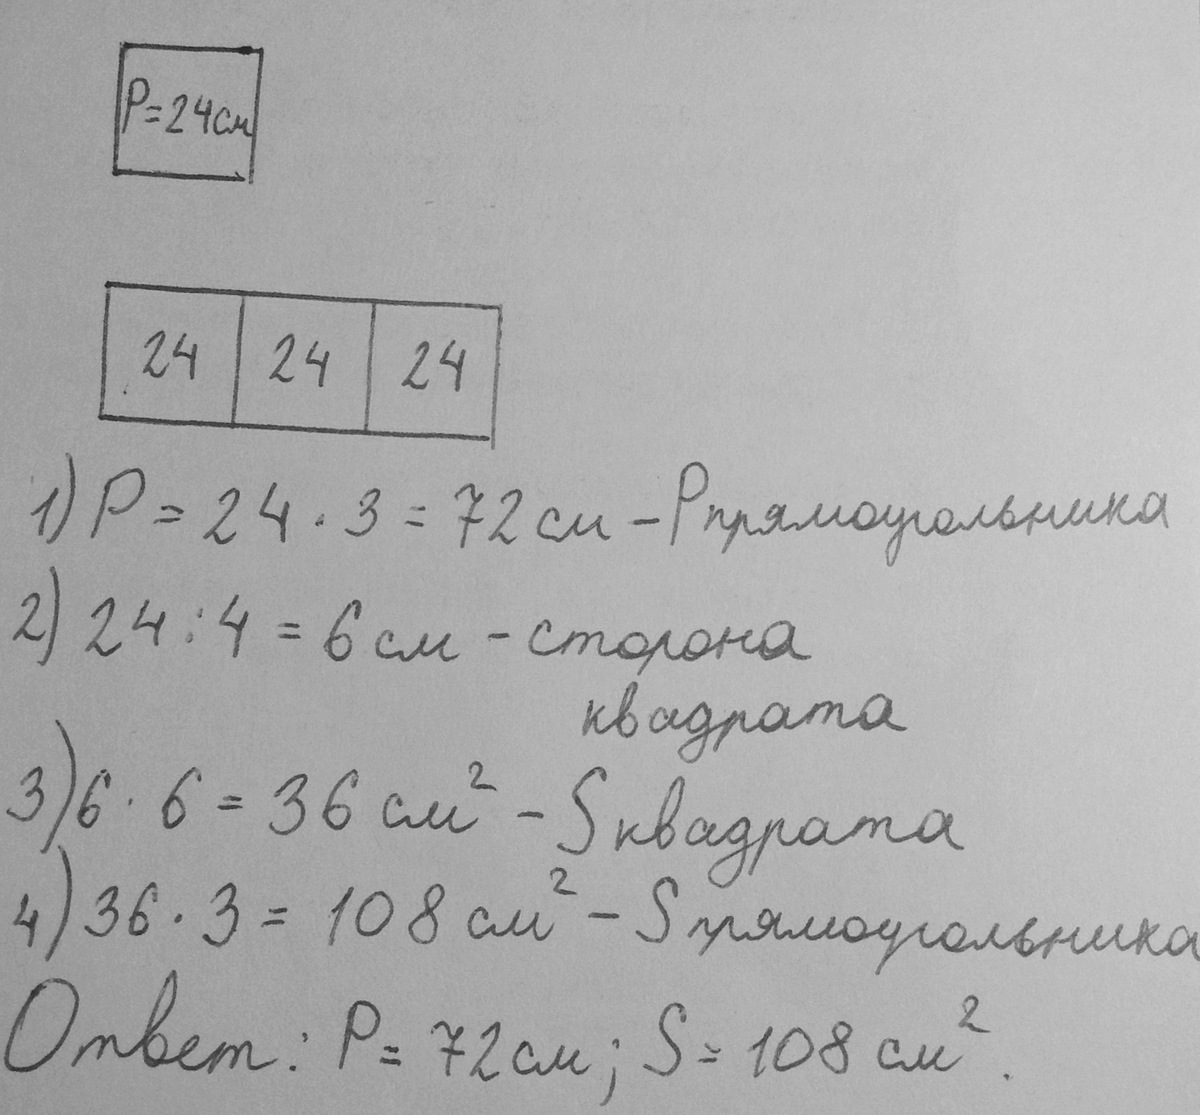 P=24см
24 24 24
1) P = 24 · 3 = 72 см – Pпрямоугольника
2) 24 : 4 = 6 см – сторона
квадрата
3) 6 · 6 = 36 см² – S квадрата
4) 36 · 3 = 108 см² – S прямоугольника
Ответ: P = 72 см; S = 108 см².